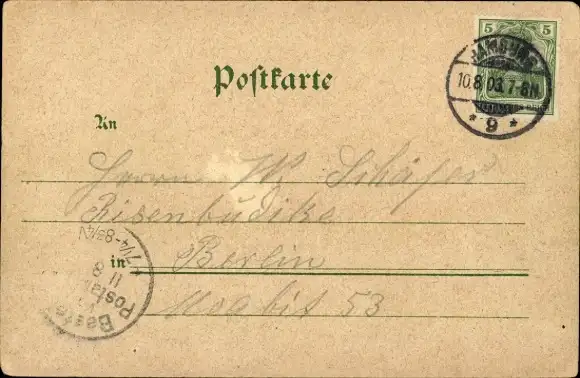 5 5
HAMBURG
10.8.03. 7-8N
* 9 *
Postkarte
An
Herrn W. Schäfer
in Berlin
Moabit 53
7¼-8½N
11 8
Bestellt
Postamt